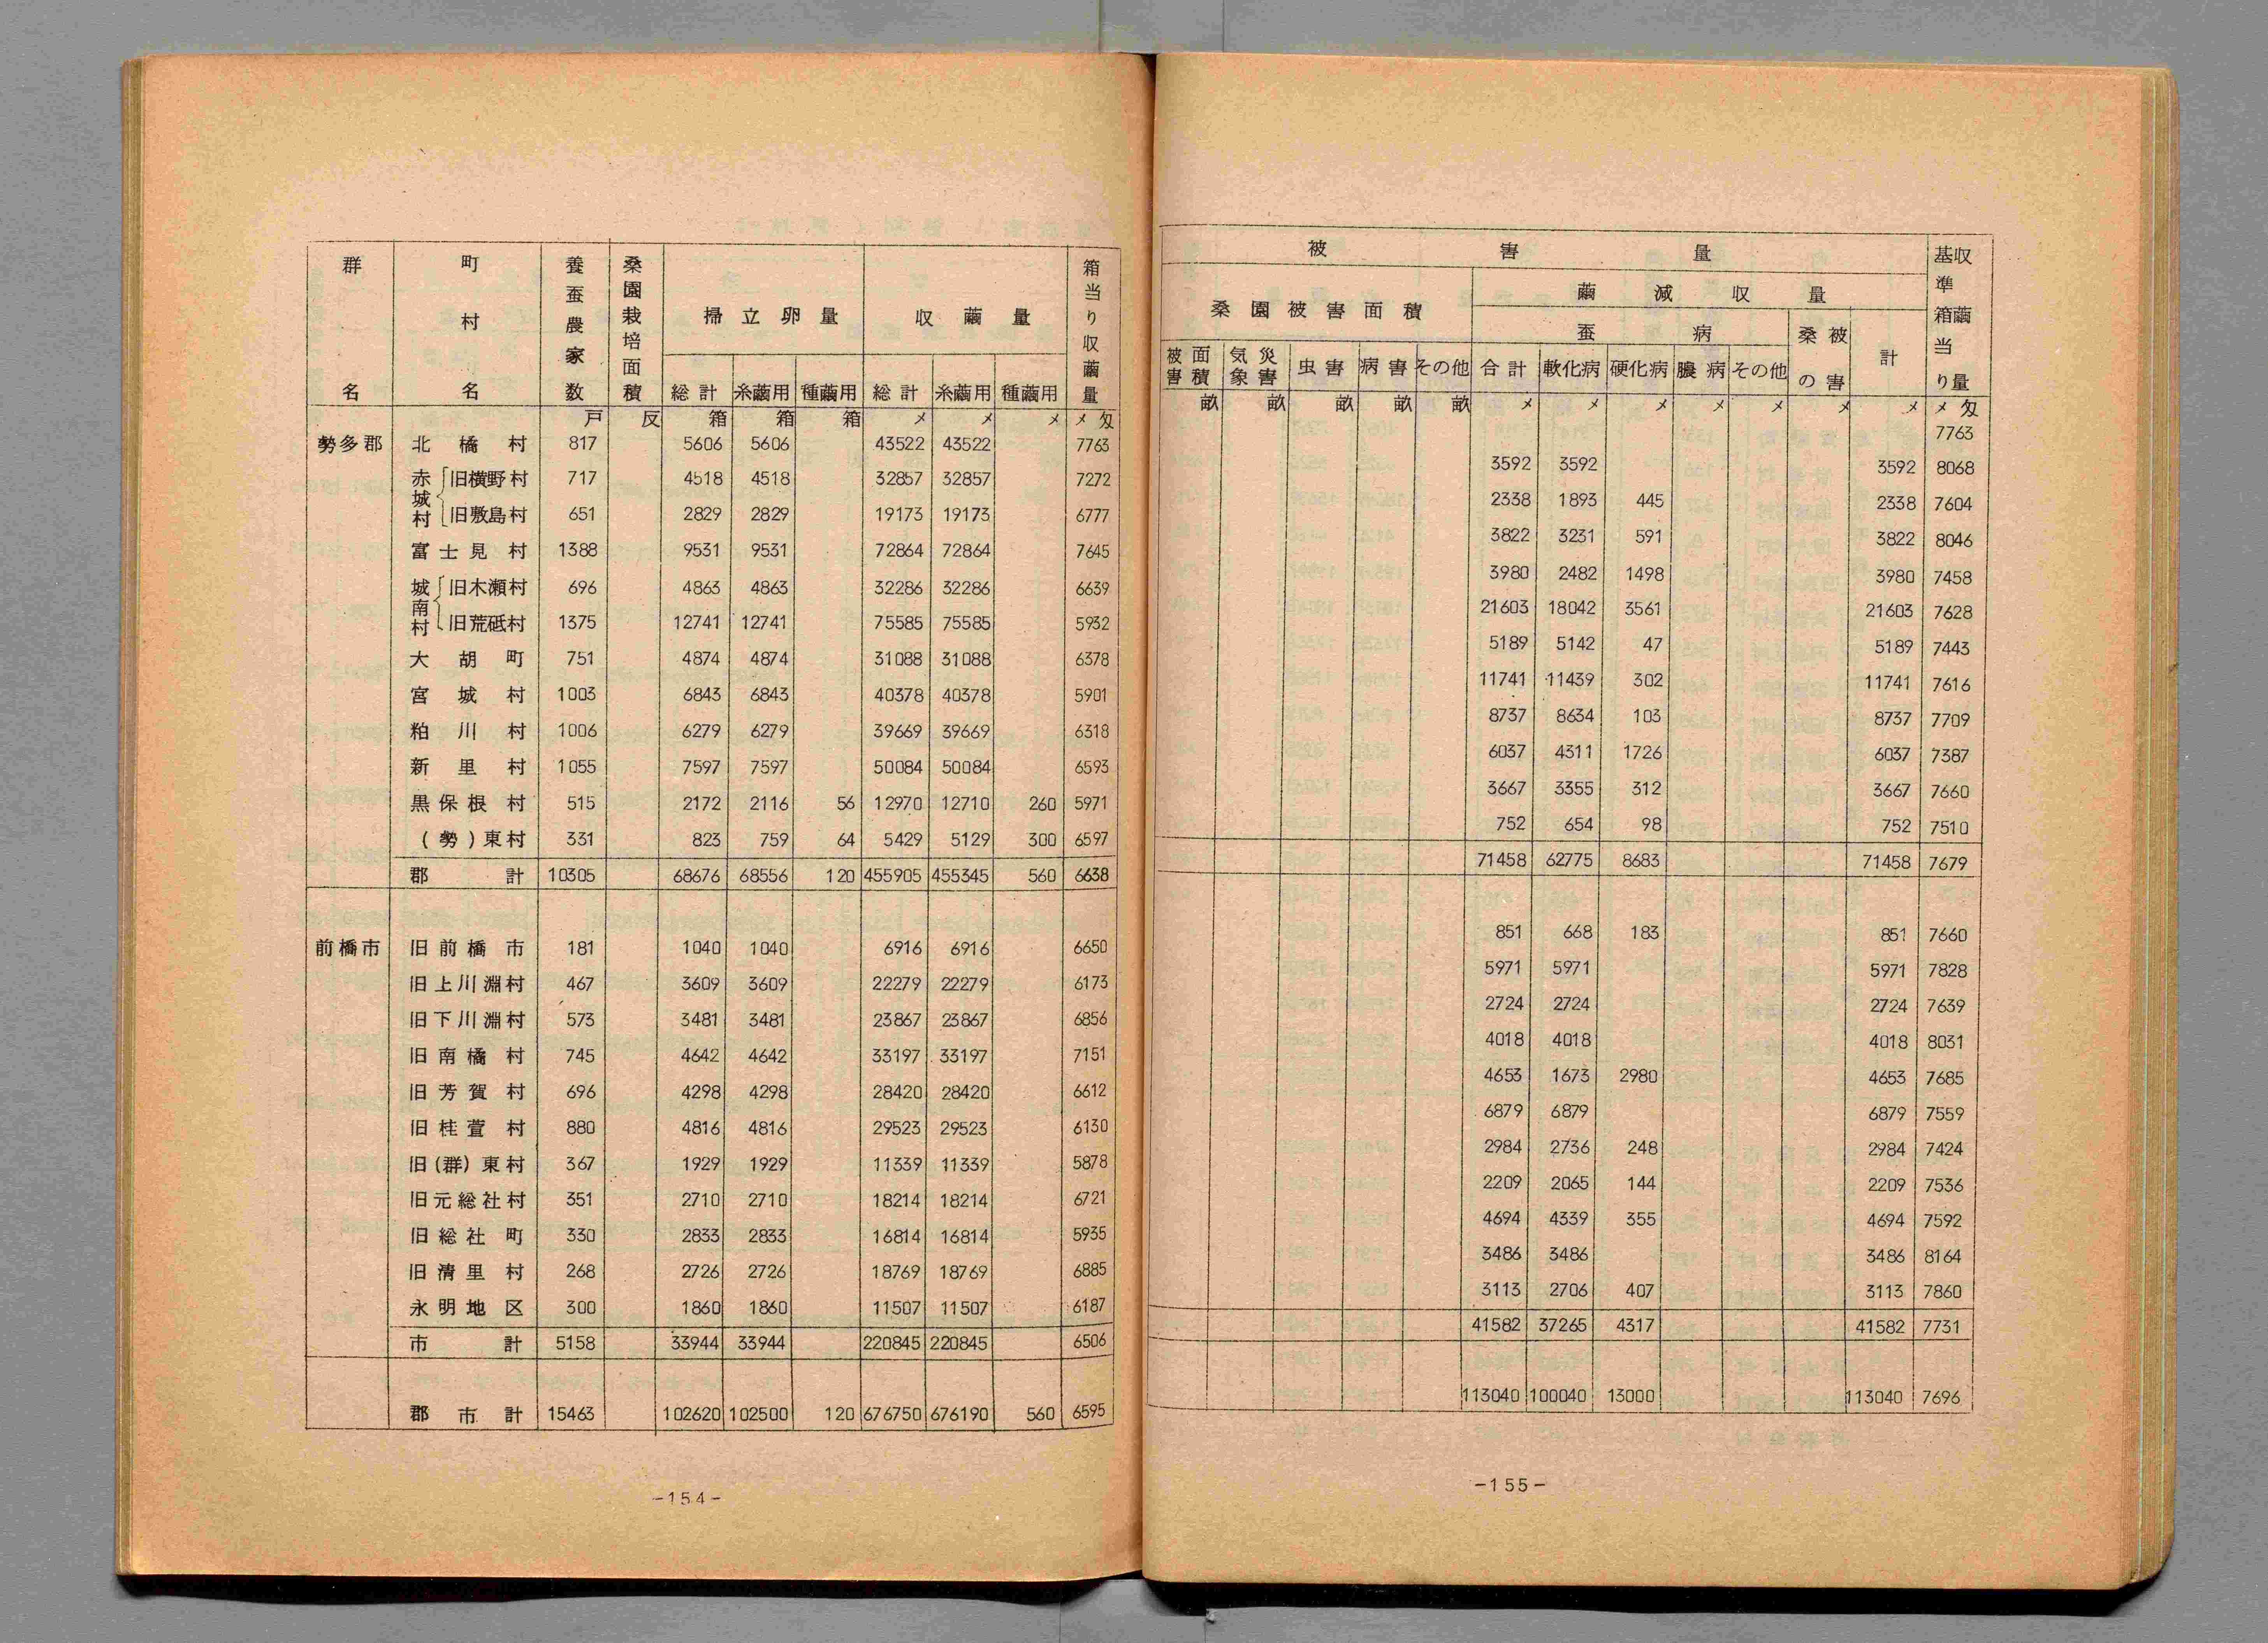 群名 町村名 養蚕農家数 桑園栽培面積 掃立卵量 収繭量 箱当り収繭量
総計 糸繭用 種繭用 総計 糸繭用 種繭用
戸 反 箱 箱 箱 メ メ メ メ匁
勢多郡 北橋村 817 5606 5606 43522 43522 7763
赤城村 旧横野村 717 4518 4518 32857 32857 7272
旧敷島村 651 2829 2829 19173 19173 6777
富士見村 1388 9531 9531 72864 72864 7645
城南村 旧木瀬村 696 4863 4863 32286 32286 6639
旧荒砥村 1375 12741 12741 75585 75585 5932
大胡町 751 4874 4874 31088 31088 6378
宮城村 1003 6843 6843 40378 40378 5901
粕川村 1006 6279 6279 39669 39669 6318
新里村 1055 7597 7597 50084 50084 6593
黒保根村 515 2172 2116 56 12970 12710 260 5971
(勢)東村 331 823 759 64 5429 5129 300 6597
郡計 10305 68676 68556 120 455905 455345 560 6638
前橋市 旧前橋市 181 1040 1040 6916 6916 6650
旧上川淵村 467 3609 3609 22279 22279 6173
旧下川淵村 573 3481 3481 23867 23867 6856
旧南橘村 745 4642 4642 33197 33197 7151
旧芳賀村 696 4298 4298 28420 28420 6612
旧桂萱村 880 4816 4816 29523 29523 6130
旧(群)東村 367 1929 1929 11339 11339 5878
旧元総社村 351 2710 2710 18214 18214 6721
旧総社町 330 2833 2833 16814 16814 5935
旧清里村 268 2726 2726 18769 18769 6885
永明地区 300 1860 1860 11507 11507 6187
市計 5158 33944 33944 220845 220845 6506
郡市計 15463 102620 102500 120 676750 676190 560 6595
-154-
被害量 基準箱当り収繭量
桑園被害面積 繭減収量
蚕病 桑被の害 計
被害面積 気象災害 虫害 病害 その他 合計 軟化病 硬化病 膿病 その他
畝 畝 畝 畝 畝 メ メ メ メ メ メ メ メ匁
7763
3592 3592 3592 8068
2338 1893 445 2338 7604
3822 3231 591 3822 8046
3980 2482 1498 3980 7458
21603 18042 3561 21603 7628
5189 5142 47 5189 7443
11741 11439 302 11741 7616
8737 8634 103 8737 7709
6037 4311 1726 6037 7387
3667 3355 312 3667 7660
752 654 98 752 7510
71458 62775 8683 71458 7679
851 668 183 851 7660
5971 5971 5971 7828
2724 2724 2724 7639
4018 4018 4018 8031
4653 1673 2980 4653 7685
6879 6879 6879 7559
2984 2736 248 2984 7424
2209 2065 144 2209 7536
4694 4339 355 4694 7592
3486 3486 3486 8164
3113 2706 407 3113 7860
41582 37265 4317 41582 7731
113040 100040 13000 113040 7696
-155-